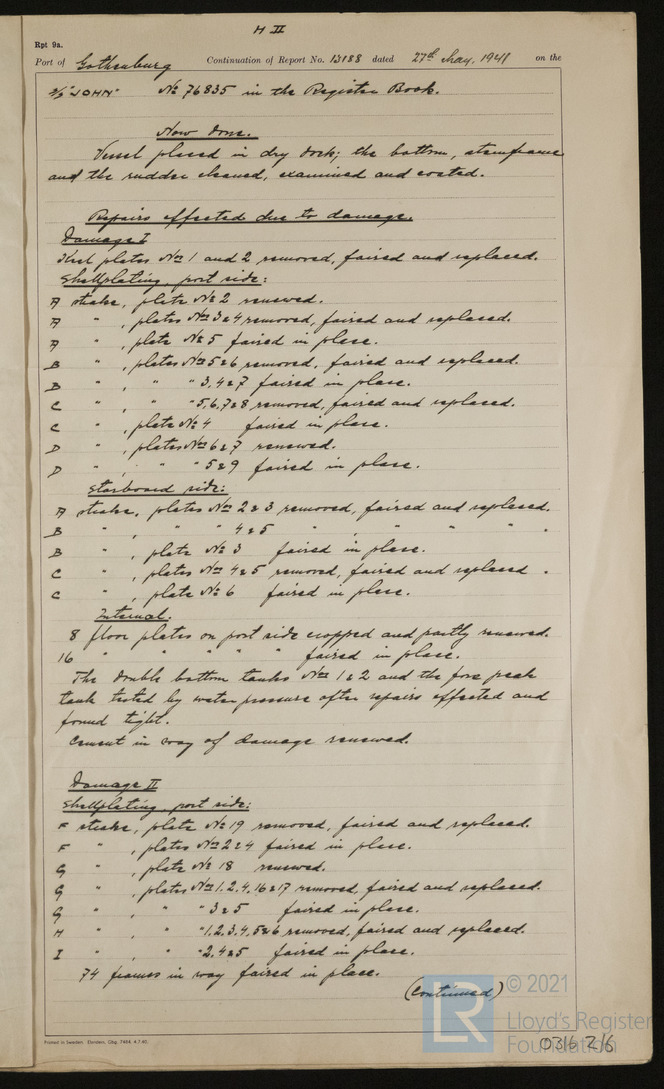 H II
Rpt 9a.
Port of Gothenburg Continuation of Report No. 13188 dated 27th May, 1941 on the
s/s "JOHN" No 76835 in the Register Book.
Now done.
Vessel placed in dry dock; the bottom, sternframe
and the rudder cleaned, examined and coated.
Repairs effected due to damage.
Damage I
Keel plates Nos 1 and 2 removed, faired and replaced.
Shellplating, port side:
A strake, plate No 2 renewed.
A " , plates Nos 3 & 4 removed, faired and replaced.
A " , plate No 5 faired in place.
B " , plates Nos 5 & 6 removed, faired and replaced.
B " , " " 3, 4 & 7 faired in place.
C " , " " 5, 6, 7 & 8 removed, faired and replaced.
C " , plate No 4 faired in place.
D " , plates Nos 6 & 7 renewed.
D " , " " 5 & 9 faired in place.
Starboard side:
A strake, plates Nos 2 & 3 removed, faired and replaced.
B " , " " 4 & 5 " , " " " .
B " , plate No 3 faired in place.
C " , plates Nos 4 & 5 removed, faired and replaced .
C " , plate No 6 faired in place.
Internal.
8 floor plates on port side cropped and partly renewed.
16 " " " " " faired in place.
The double bottom tanks Nos 1 & 2 and the fore peak
tank tested by water pressure after repairs effected and
found tight.
Cement in way of damage renewed.
Damage II
Shellplating, port side:
F strake, plate No 19 removed, faired and replaced.
F " , plates Nos 2 & 4 faired in place.
G " , plate No 18 renewed.
G " , plates Nos 1, 2, 4, 16 & 17 removed, faired and replaced.
G " , " " 3 & 5 faired in place.
H " , " " 1, 2, 3, 4, 5 & 6 removed, faired and replaced.
I " , " " 2, 4 & 5 faired in place.
74 frames in way faired in place.
(continued)
Printed in Sweden.
© 2021
Lloyd's Register
Foundation
0316 2/6